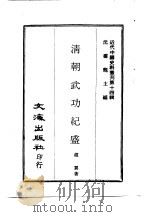 近代中國史料叢刊第十四輯
沈雲龍主編
清朝武功紀盛
趙翼著
文海出版社
印行